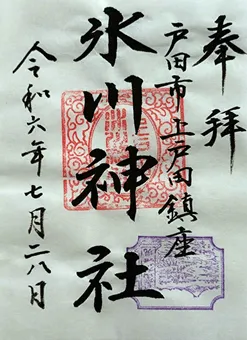 奉拝
戸田市上戸田鎮座
氷川神社
令和六年七月二八日